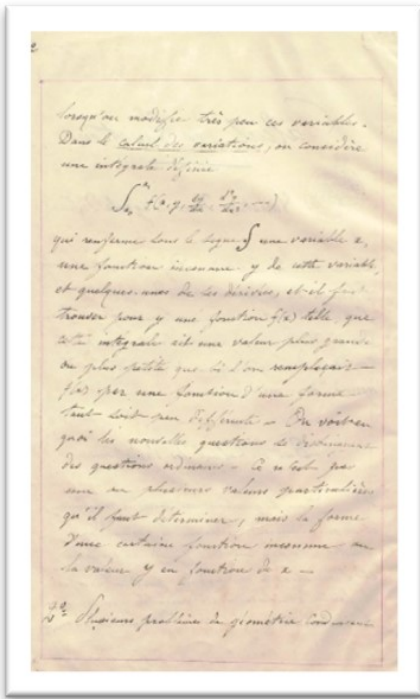 lorsqu'on modifie très peu ces variables.
Dans le calcul des variations, on considère
une intégrale définie
∫ f(x, y, dy/dx, d²y/dx², ...)
qui renferme sous le signe ∫ une variable x,
une fonction inconnue y de cette variable,
et quelques-unes de ses dérivées, et il faut
trouver pour y une fonction f(x) telle que
cette intégrale ait une valeur plus grande
ou plus petite que si l'on remplaçait
f(x) par une fonction d'une forme
tant soit peu différente - On voit en
quoi les nouvelles questions se distinguent
des questions ordinaires - Ce n'est pas
une ou plusieurs valeurs particulières
qu'il faut déterminer, mais la forme
d'une certaine fonction inconnue ou
la valeur y en fonction de x -
Plusieurs problèmes de géométrie conduisent